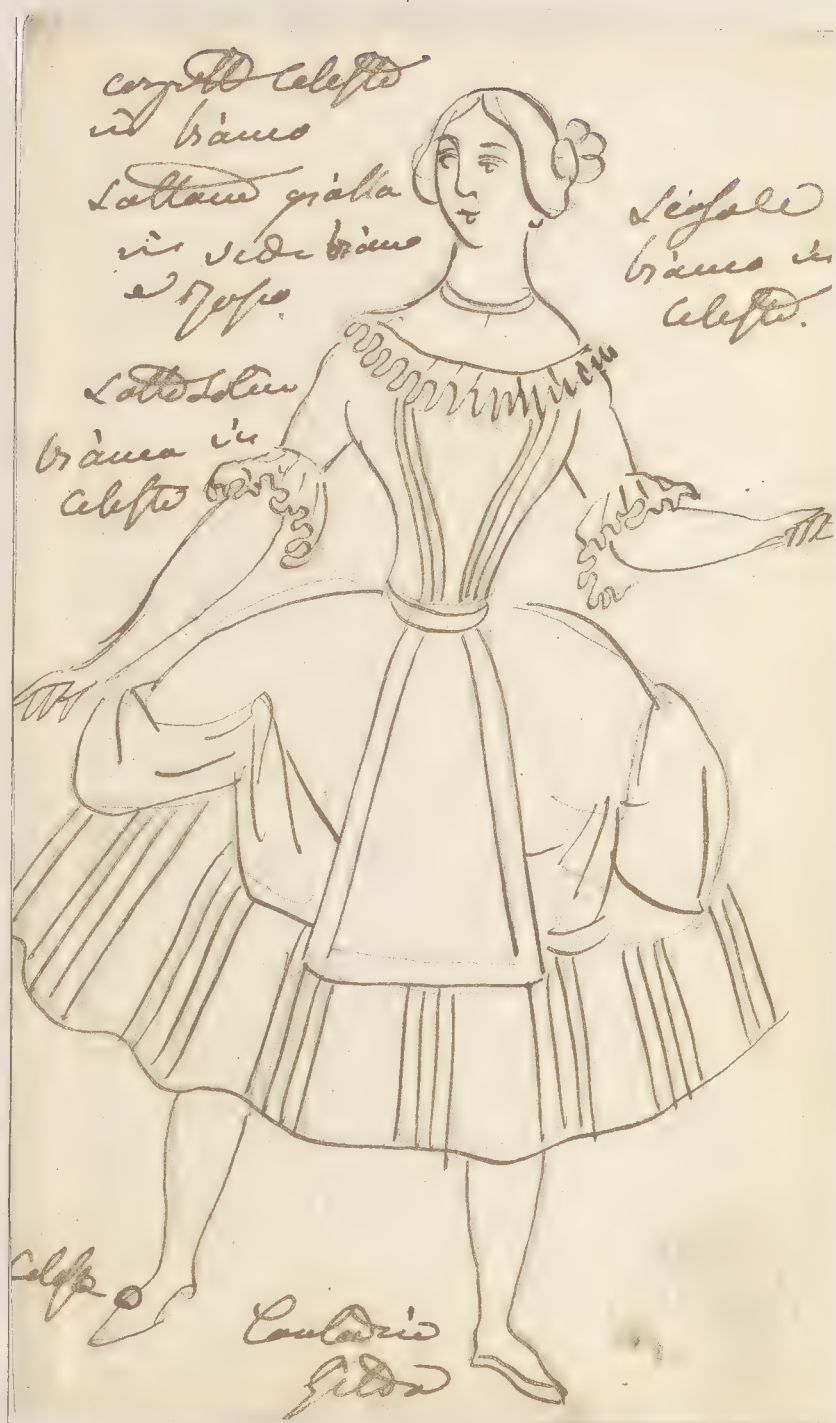 corpetto celeste
in bianco
Sottana gialla
in verde bianco
e rosso.
Scialle
bianco in
celeste.
bianca in
celeste
Celeste
Contadina
Gilda